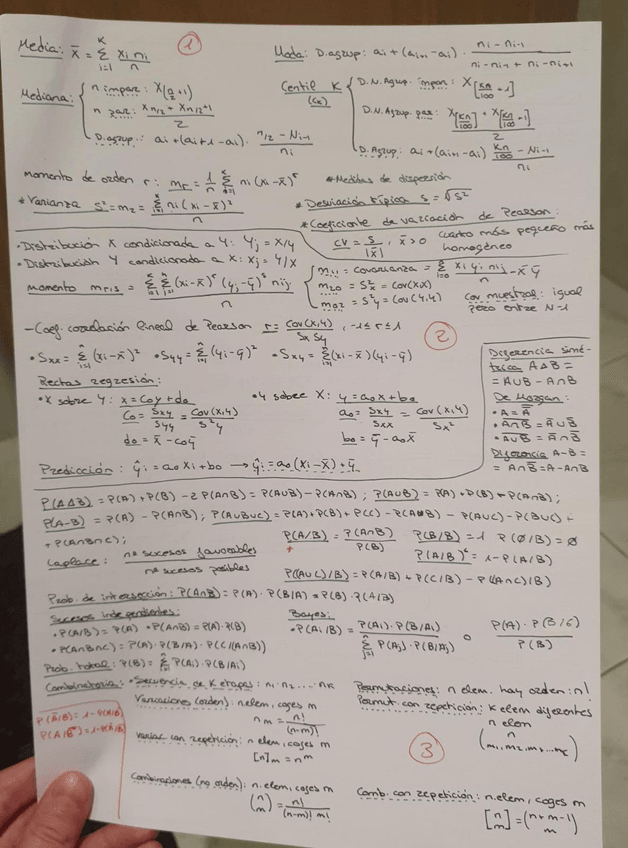 Media: x̄ = Σ_{i=1}^{K} xi ni / n
①
Moda: D.agrup: ai + (ai+1 - ai) · (ni - ni-1) / (ni - ni-1 + ni - ni+1)
Mediana: { n impar: X(n/2 + 1)
n par: (X n/2 + X n/2+1) / 2
D.agrup: ai + (ai+1 - ai) · (n/2 - Ni-1) / ni
Centil K (CK) { D.N.Agrup. impar: X[Kn/100 + 1]
D.N.Agrup. par: (X[Kn/100] + X[Kn/100 + 1]) / 2
D. Agrup: ai + (ai+1 - ai) (Kn/100 - Ni-1) / ni
momento de orden r: mr = 1/n Σ_{i=1}^{K} ni (xi - x̄)^r
* Medidas de dispersión
* Varianza S² = m2 = Σ_{i=1}^{K} ni (xi - x̄)² / n
* Desviación típica s = √S²
* Coeficiente de variación de Pearson:
CV = S / |x̄| , x̄ > 0 cuanto más pequeño más homogéneo
• Distribución X condicionada a Y: Yj = X/Y
• Distribución Y condicionada a X: Xj = Y/X
momento mr,s = ΣΣ (xi - x̄)^r (yj - ȳ)^s nij / n
{ m11 = covarianza = Σ xi yi nij / n - x̄ ȳ
m20 = S²x = Cov(X,X)
m02 = S²y = Cov(Y,Y)
Cov muestral: igual pero entre N-1
- Coef. correlación lineal de Pearson r = Cov(X,Y) / Sx Sy , -1 ≤ r ≤ 1
②
• Sxx = Σ_{i=1}^{n} (xi - x̄)² • Syy = Σ_{i=1}^{n} (yi - ȳ)² • Sxy = Σ_{i=1}^{n} (xi - x̄)(yi - ȳ)
Rectas regresión:
• X sobre Y: x = c0y + d0
c0 = Sxy / Syy = Cov(X,Y) / S²y
d0 = x̄ - c0ȳ
• Y sobre X: y = a0x + b0
a0 = Sxy / Sxx = Cov(X,Y) / Sx²
b0 = ȳ - a0x̄
Predicción: ŷi = a0xi + b0 → ŷi = a0(xi - x̄) + ȳ
Diferencia simétrica A∆B =
= A∪B - A∩B
De Morgan:
• A = A̿
• A∩B = A̅ ∪ B̅
• A∪B = A̅ ∩ B̅
Diferencia A-B =
= A∩B̅ = A - A∩B
P(A∆B) = P(A) + P(B) - 2P(A∩B) = P(A∪B) - P(A∩B) ; P(A∪B) = P(A) + P(B) - P(A∩B) ;
P(A-B) = P(A) - P(A∩B) ; P(A∪B∪C) = P(A) + P(B) + P(C) - P(A∩B) - P(A∪C) - P(B∪C) +
+ P(A∩B∩C) ;
Laplace: nº sucesos favorables / nº sucesos posibles
P(A/B) = P(A∩B) / P(B) P(B/B) = 1 P(Ø/B) = Ø
P(A/B)ᶜ = 1 - P(A/B)
P((A∪C)/B) = P(A/B) + P(C/B) - P((A∩C)/B)
Prob. de intersección: P(A∩B) = P(A) · P(B/A) = P(B) · P(A/B)
Sucesos independientes:
• P(A/B) = P(A) • P(A∩B) = P(A)·P(B)
• P(A∩B∩C) = P(A)·P(B/A)·P(C/(A∩B))
Bayes:
• P(Ai/B) = P(Ai)·P(B/Ai) / Σ_{j=1}^{n} P(Aj)·P(B/Aj) o P(A)·P(B/G) / P(B)
Prob. total: P(B) = Σ_{i=1}^{n} P(Ai)·P(B/Ai)
Combinatoria: • Secuencia de K etapas: n1·n2·...·nk
Permutaciones: n elem. hay orden: n!
Permut. con repetición: K elem diferentes
n elem
(n / m1, m2, m3, ... mk)
P(A̅/B) = 1 - P(A/B)
P(A/B̅) = 1 - P(A/B)
Variaciones (orden): n elem, coges m
n m = n! / (n-m)!
Variac con repetición: n elem, coges m
[n]m = n^m
③
Combinaciones (no orden): n. elem, coges m
(n m) = n! / (n-m)! m!
Comb. con repetición: n. elem, coges m
[n m] = (n+m-1 m)